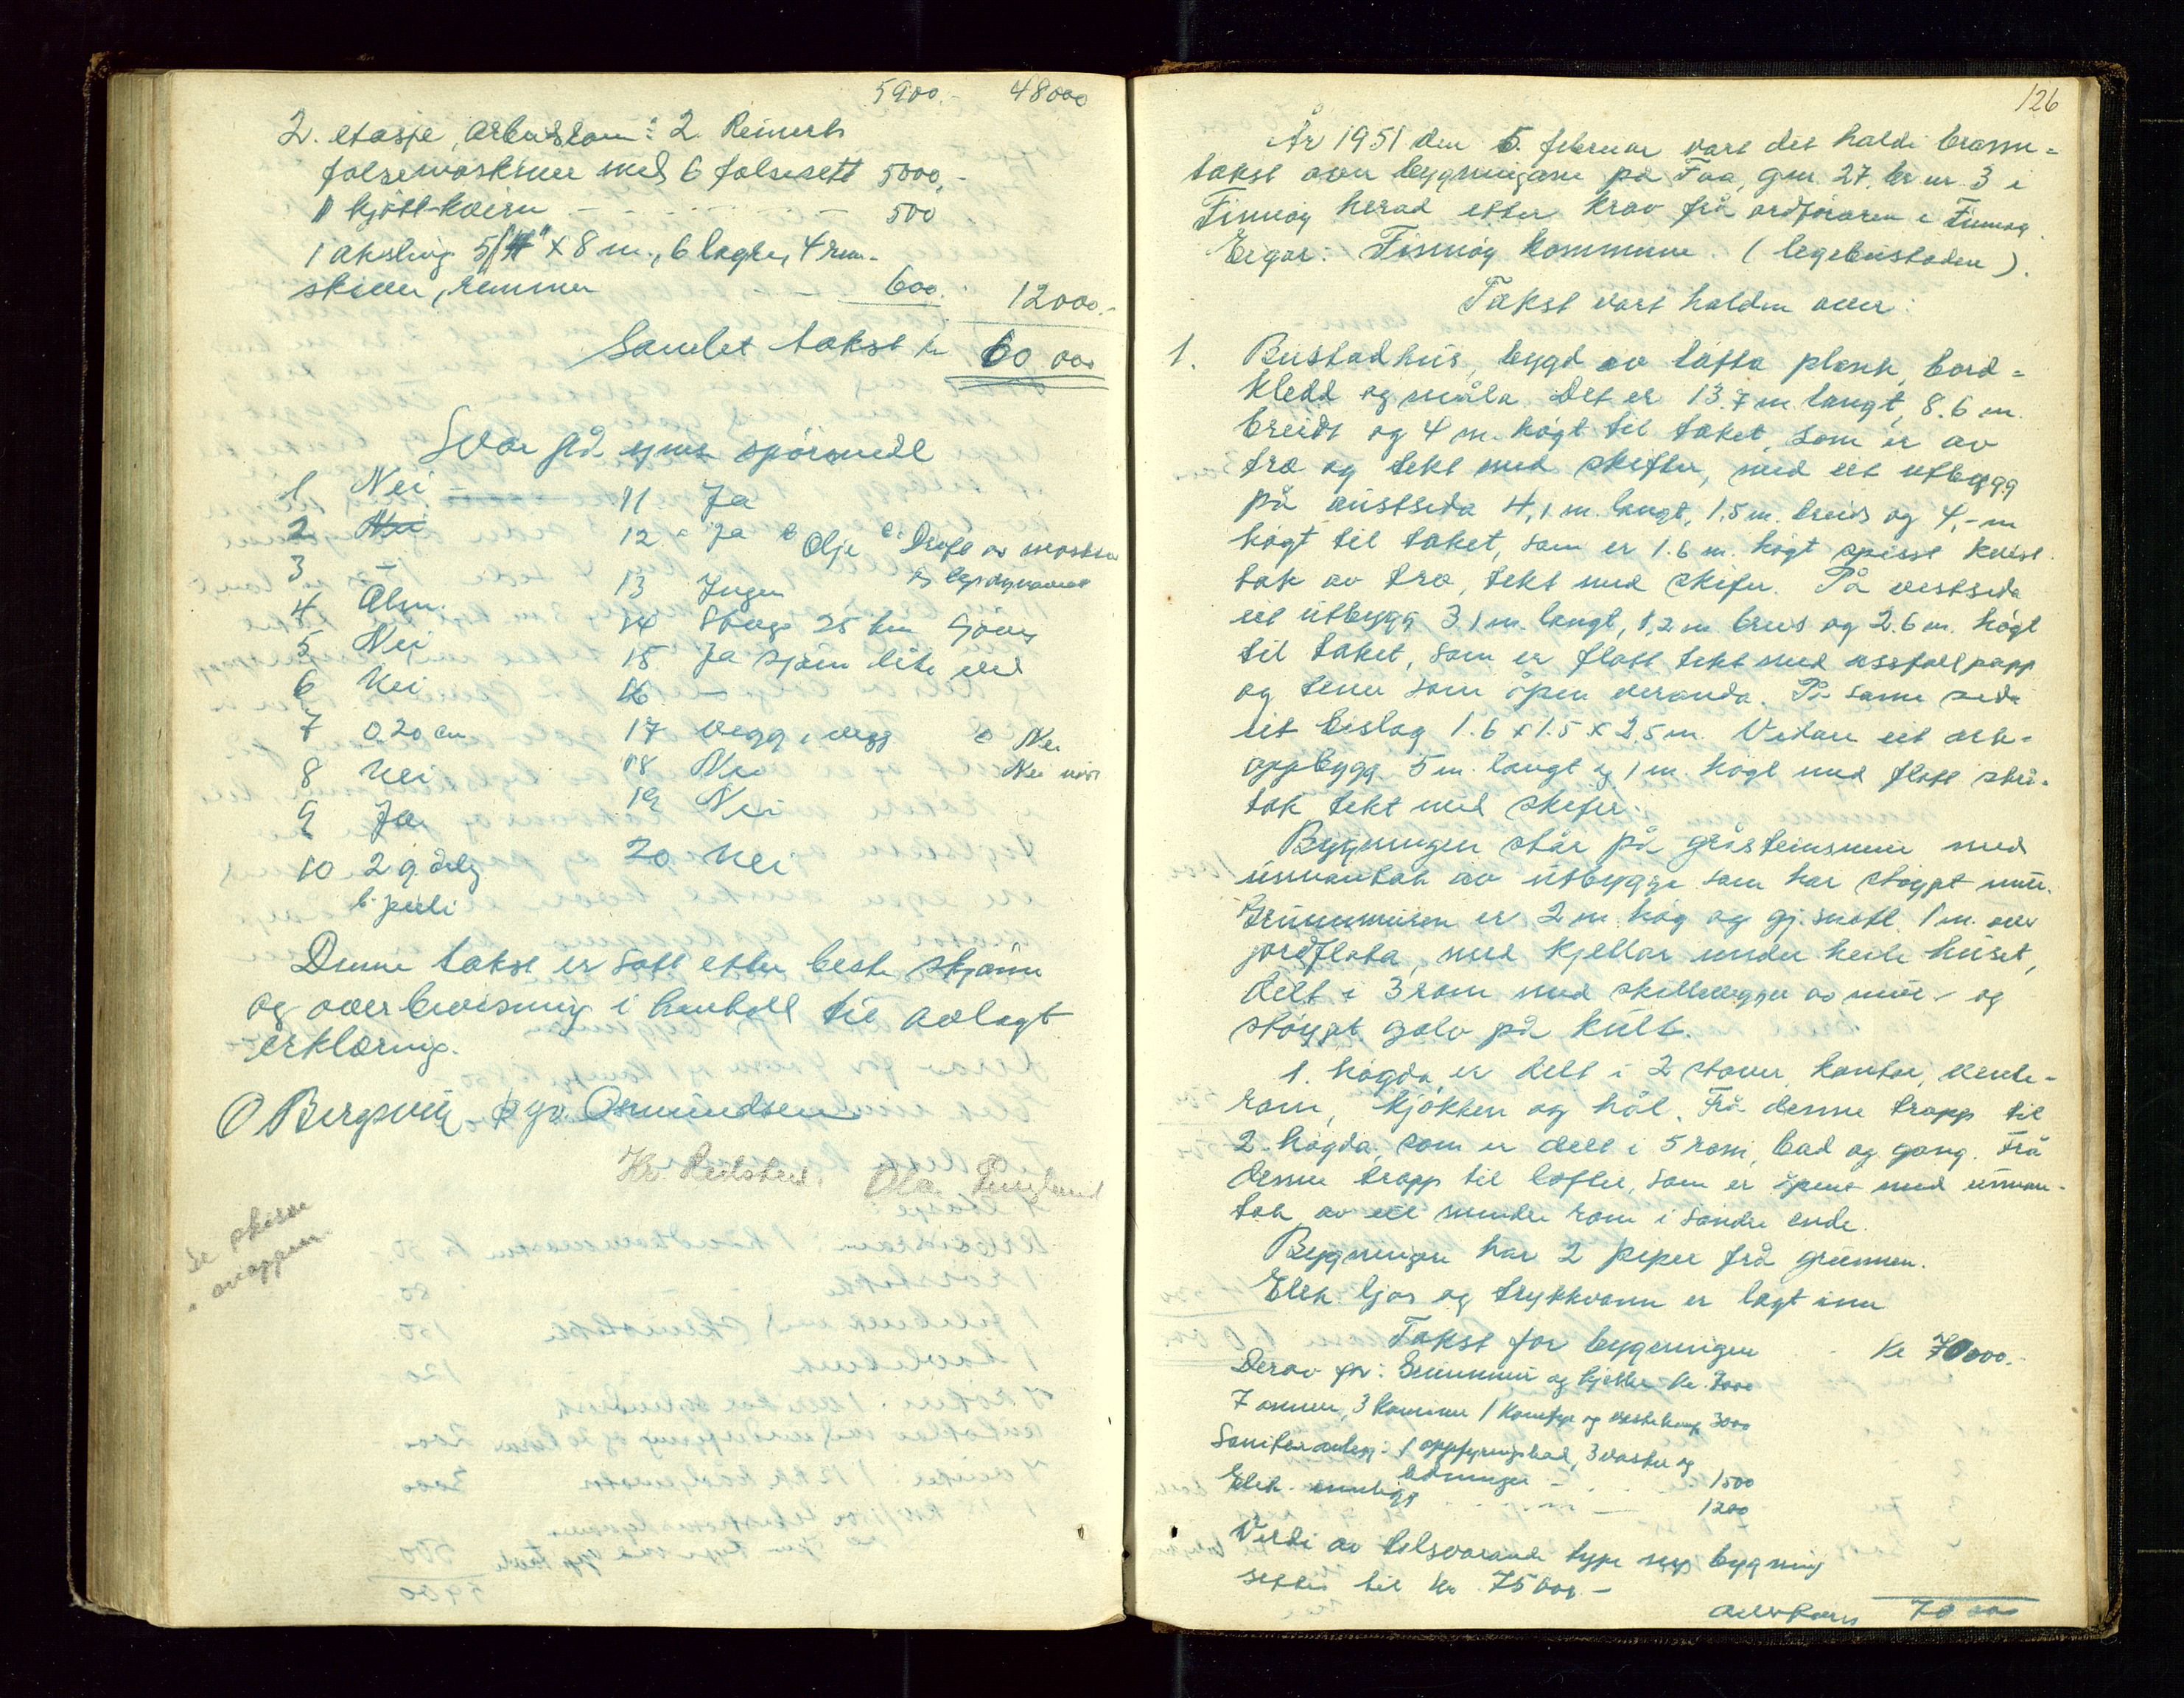 5900.- 48000
2. etasje, arbeidsrom: 2 Reinerts
falsemaskiner med 6 falsesett 5000,-
1 kjøtt-kvern - - - - - 500
1 aksling 5/4" x 8 m., 6 lagre, 4 rem-
skiver, remmer - - 600. 12000.-
Samlet takst kr 60 000
Svar på spørsmål
1 Nei - 11 Ja
2 Nei 12 a Ja b Olje c. Drift av maskiner
3 -
13 Ingen
4 Alm. 14 25 km
5 Nei 15 Ja lite
6 Nei 16 -
7 0.20 cm 17 vegg i vegg Nei
8 Nei 18 Nei Nei
9 Ja 19 Nei
10 2 g. årleg 20 Nei
Denne takst er satt etter beste skjønn
og overbevisning i henhold til avlagt
erklæring.
O Bergsvåg Osmundsen
Ola
Se skisse
i mappen
126
År 1951 den 5. februar vart det haldi brann-
takst over bygningane på Faa, gnr. 27, br. nr. 3 i
Finnøy herad etter krav frå ordføraren i Finnøy.
Eigar: Finnøy kommune. (legebustaden).
Takst vart halden over:
1. Bustadhus, bygd av lafta plank, bord-
kledd og måla. Det er 13.7 m. langt, 8.6 m.
breidt og 4 m. høgt til taket, som er av
tre og tekt med skifer, med eit utbygg
på austsida 4,1 m. langt, 1,5 m. breid og 4,- m
høgt til taket, som er 1.6 m. høgt spisst kvist-
tak av tre, tekt med skifer. På vestsida
eit utbygg 3,1 m. langt, 1,2 m. breid og 2.6 m. høgt
til taket, som er flatt tekt med assfaltpapp
og tener som åpen veranda. På same sida
eit bislag 1.6 x 1.5 x 2,5 m. Vidare eit ark-
oppbygg 5 m. langt og 1 m. høgt med flatt skrå-
tak tekt med skifer.
Bygningen står på gråsteinsmur med
unnantak av utbygga som har støypt mur.
Grunnmuren er 2 m. høg og gj. snittl. 1 m. over
jordflata, med kjellar under heile huset,
delt i 3 rom med skillevegger av mur og
støypt golv på kult.
1. høgda er delt i 2 stover, kontor, vente-
rom, kjøkken og hål. Frå denne trapp til
2. høgda, som er delt i 5 rom, bad og gang. Frå
denne trapp til loftet, som er åpent med unnan-
tak av eit mindre rom i søndre ende.
Bygningen har 2 piper frå grunnen.
Elek. ljos og trykkvann er lagt inn
Takst for bygningen - kr 70000.-
Derav for: Grunnmur og kjeller kr. 7000
7 omner, 3 kaminer 1 komfyr og 3000
Saniteranlegg: 1 oppfyringsbad, 3 vasker og
ledninger - - 1500
Elek. innlegg - - 1200
Verdi av tilsvarande type ny bygning
settes til kr. 75000.-
Overføres 70 000